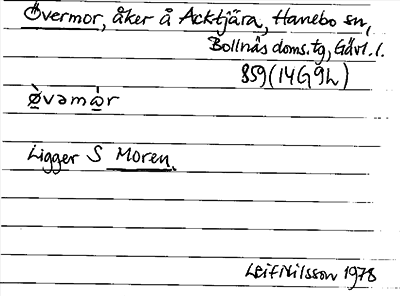 Övermor, åker å Acktjära, Hanebo sn,
Bollnäs doms.tg, Gävl.l.
859 (14G9h)
ø̀vəmàr
Ligger S Moren.
Leif Nilsson 1978